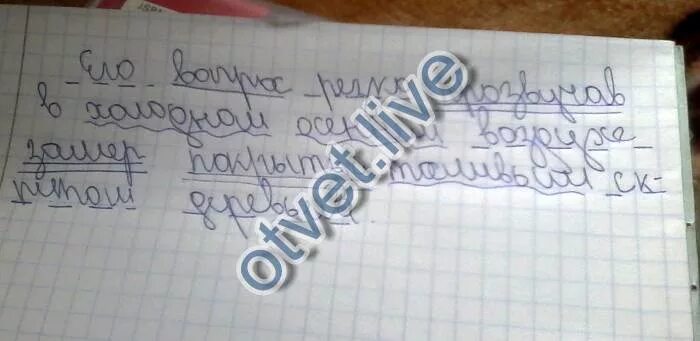 Его вопрос резко прозвучав
в холодном осеннем воздухе
замер покрытый тоскливым ск-
рипом деревьев.
otvet.live